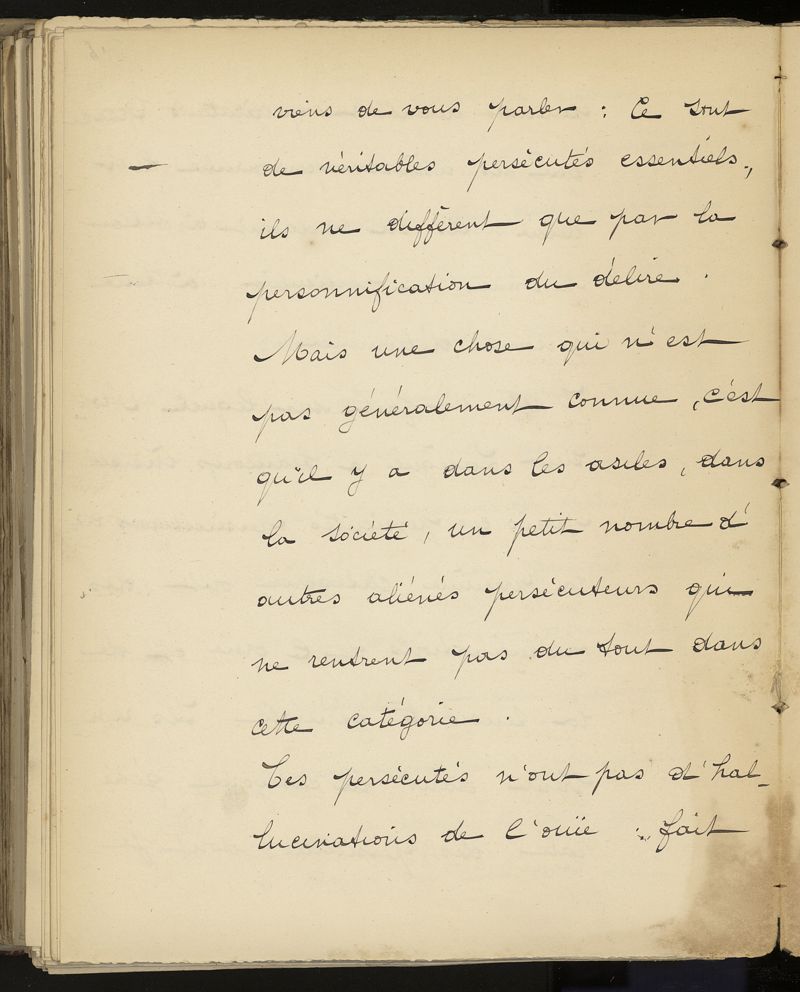 viens de vous parler : Ce sont
de véritables persécutés essentiels,
ils ne diffèrent que par la
personnification du délire .
Mais une chose qui n'est
pas généralement connue , c'est
qu'il y a dans les asiles, dans
la société, un petit nombre d'
autres aliénés persécuteurs qui
ne rentrent pas du tout dans
cette catégorie .
Ces persécutés n'ont pas d'hal-
lucinations de l'ouïe : fait